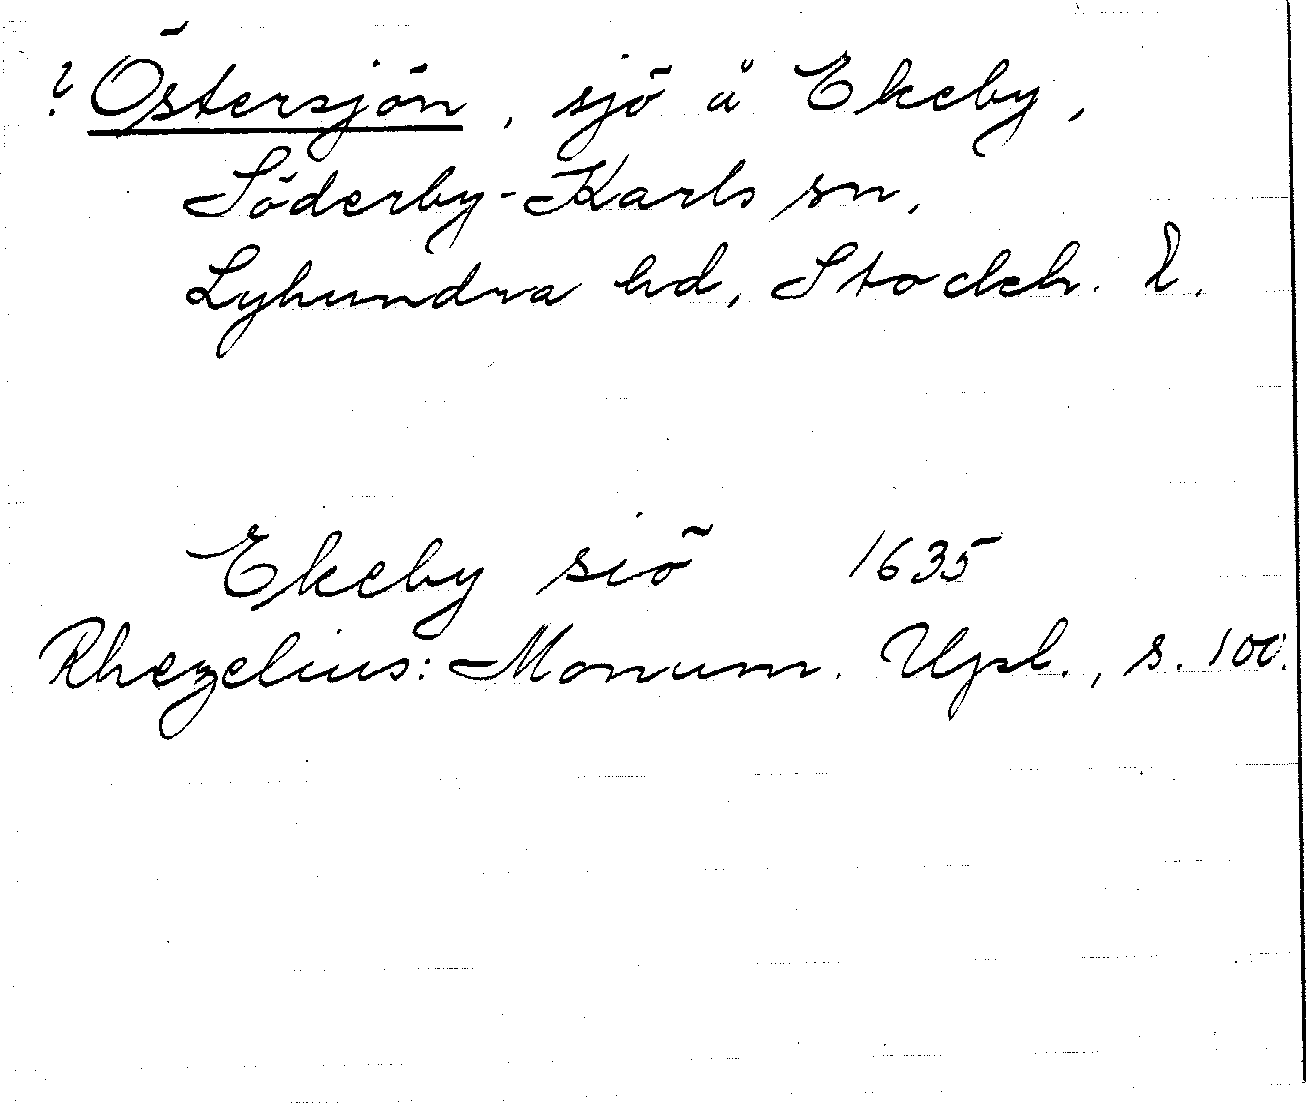 ? Östersjön, sjö å Ekeby,
Söderby-Karls sn,
Lyhundra hd, Stockh. l.
Ekeby siö 1635
Rhezelius: Monum. Upl., s. 100.